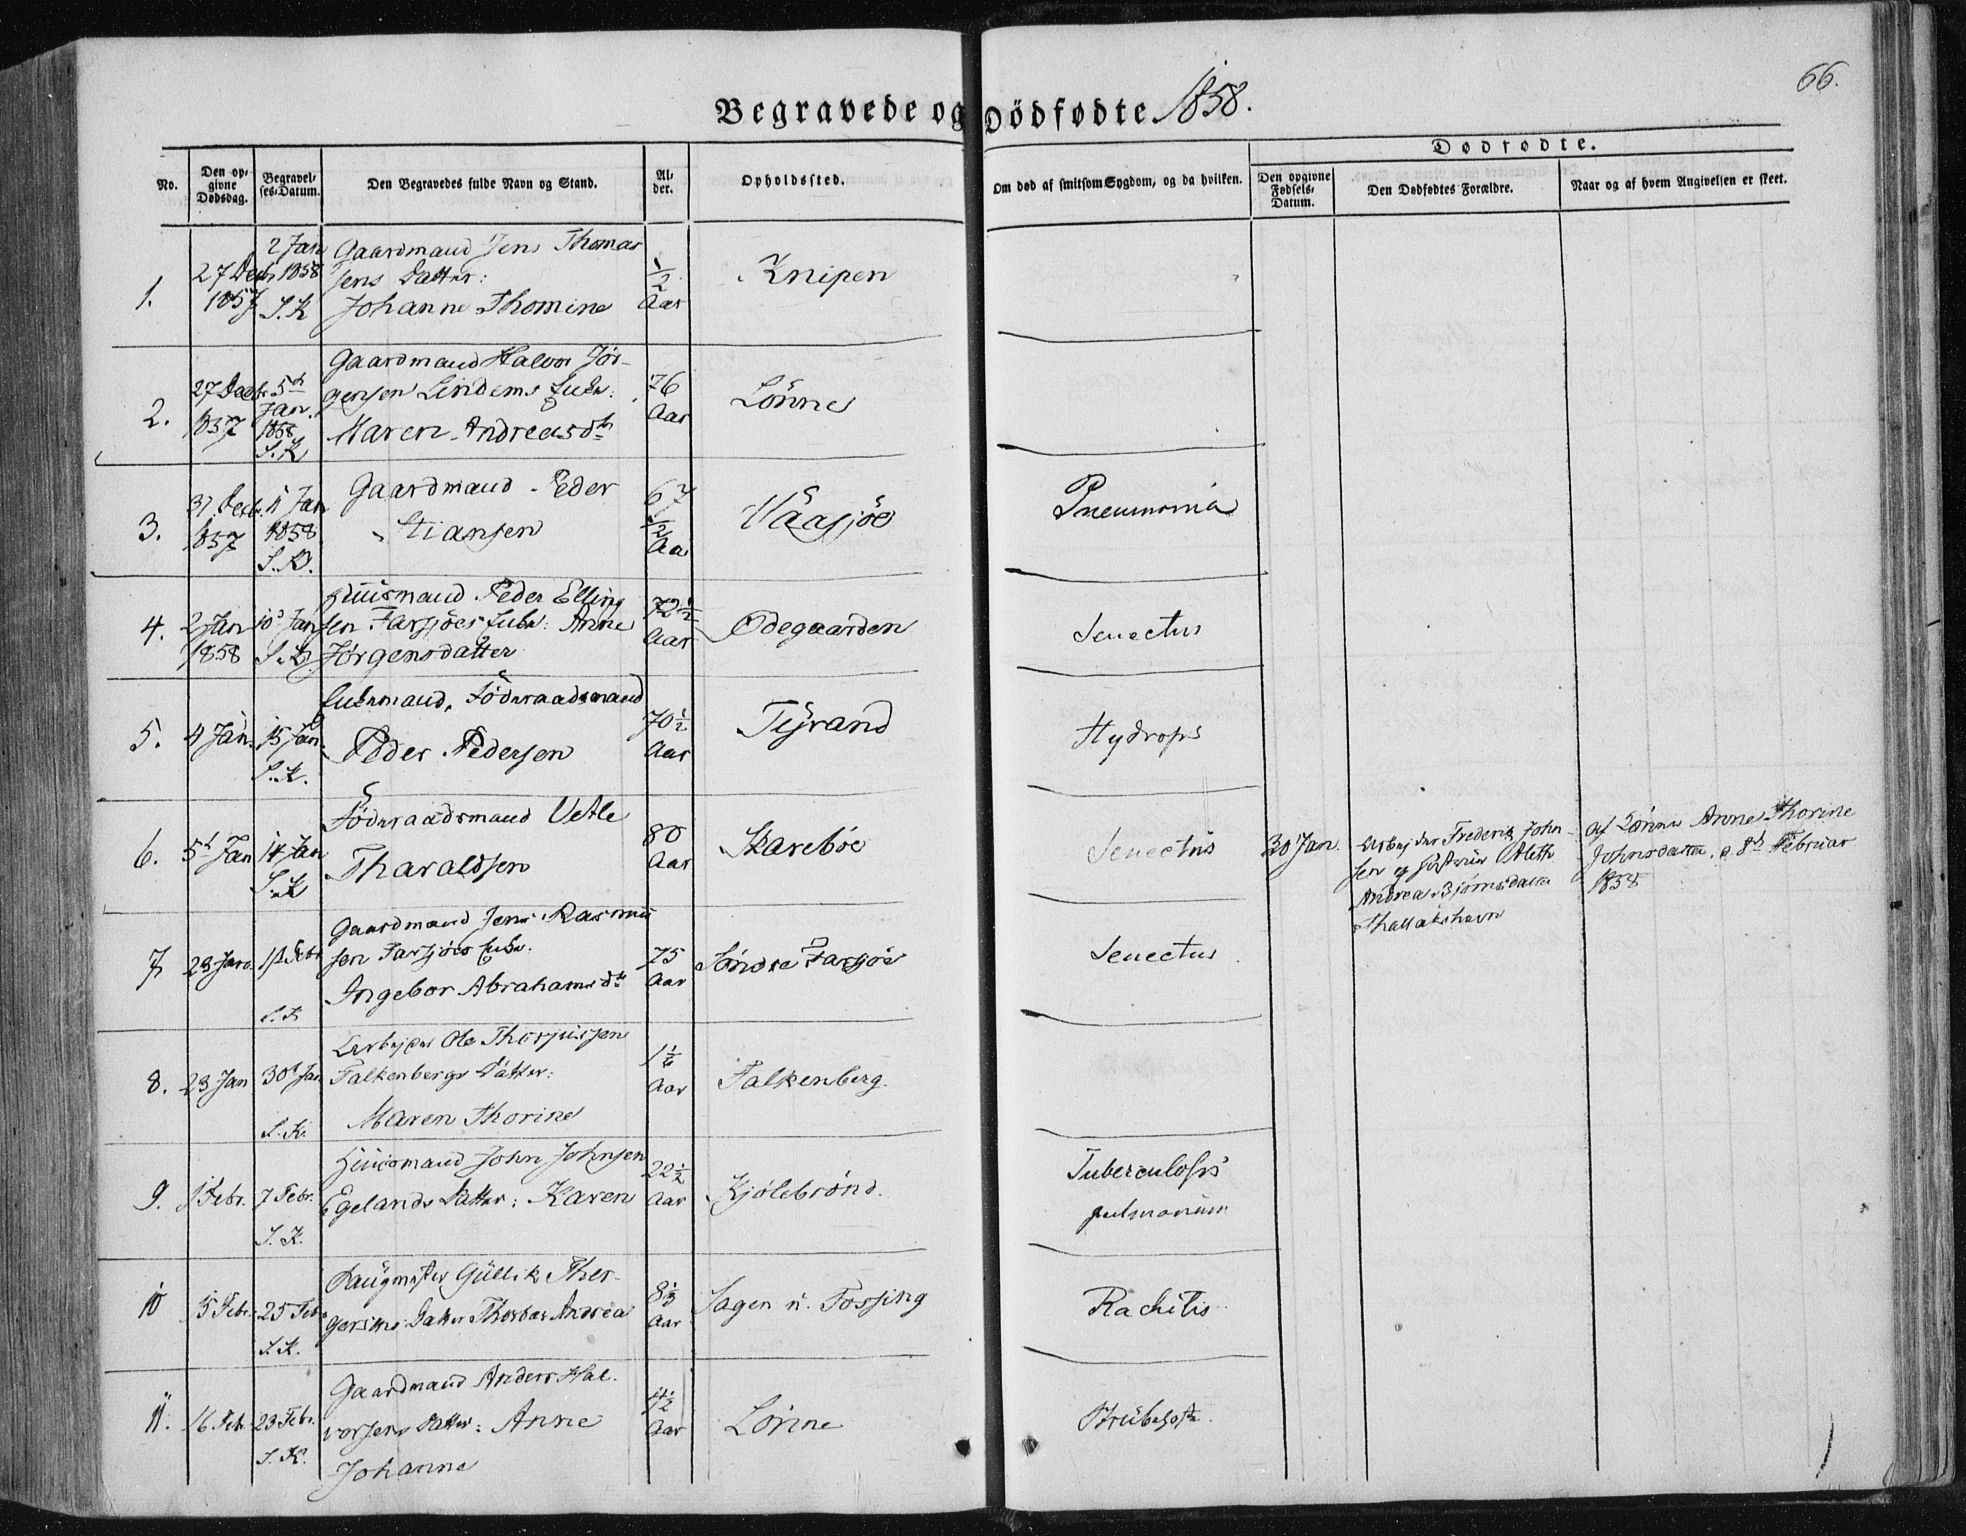 66.
Begravede og Dödfødte 1858.
No.
Den opgivne Dødsdag.
Begravelses-Datum.
Den Begravedes fulde Navn og Stand.
Alder.
Opholdssted.
Om død af smitsom Sygdom, og da hvilken.
Dødfødte.
Den opgivne Fødsels-Datum.
Den Dødfødtes Forældre.
Naar og af hvem Angivelsen er skeet.
1.
27 Decbr 1857
2 Jan 1858 S.K
Gaardmand Jens Thomas
sens Datter:
Johanne Thomine
1/2 Aar
Knipen
2.
27 Decbr. 1857
5th Jan. 1858 S.K
Gaardmand Halvor Jör-
gensen Lindems Enke:
Maren Andreasdtr
76 Aar
Lönne
3.
31 Decb. 1857
11 Jan 1858 S.K.
Gaardmand Peder
Stiansen
67 1/2 Aar
Vaasjöe
Pneumonia
4.
2 Jan 1858
10d Jan S.K
Huusmand Peder Elling
sen Farsjöes Enke: Anne
Jörgensdatter
72 1/2 Aar
Ödegaarden
Senectus
5.
4 Jan.
15 Jan. S.K.
Enkemand, Föderaadsmand
Peder Pedersen
70 1/2 Aar
Tejrand
Hydrops
6.
5t Jan
14 Jan S.K
Föderaadsmand Vetle
Tharaldsen
80 Aar
Skareböe
Senectus
30 Jan.
Arbejder Frederik John-
sen og Hustrue Aleth
Andrea Björnsdatter
Thallakshavn
af Lönne Anne Thorine
Johnsdatter. d 8d Februar
1858
7
23 Jan.
1st Febr S.K
Gaardmand Jens Rasmus
sen Farsjöes Enke.
Ingebor Abrahamsdtr
75 Aar
Söndre Farsjöe
Senectus
8.
23 Jan
30t Jan S.K.
Arbejder Ole Thorjussen
Falkenbergs Datter:
Maren Thorine
1 1/6 Aar
Falkenberg.
9.
1 Febr.
7 Febr. S.K.
Huusmand John Johnsen
Egelands Datter: Karen
22 1/2 Aar
Kjölebrönd.
Tuberculosis
pulmonum
10
15 Febr.
25 Febr. S.K.
Saugmester Gullik Ther-
gersens Datter Thorbor Andrea
8 1/3 Aar
Sagen u. Fossing
Rachitis
11.
16 Feb.
23 Febr. S.K.
Gaardmand Anders Hal-
vorsens Datter: Anne
Johanne
4 1/2 Aar
Lönne
Strubehoste.